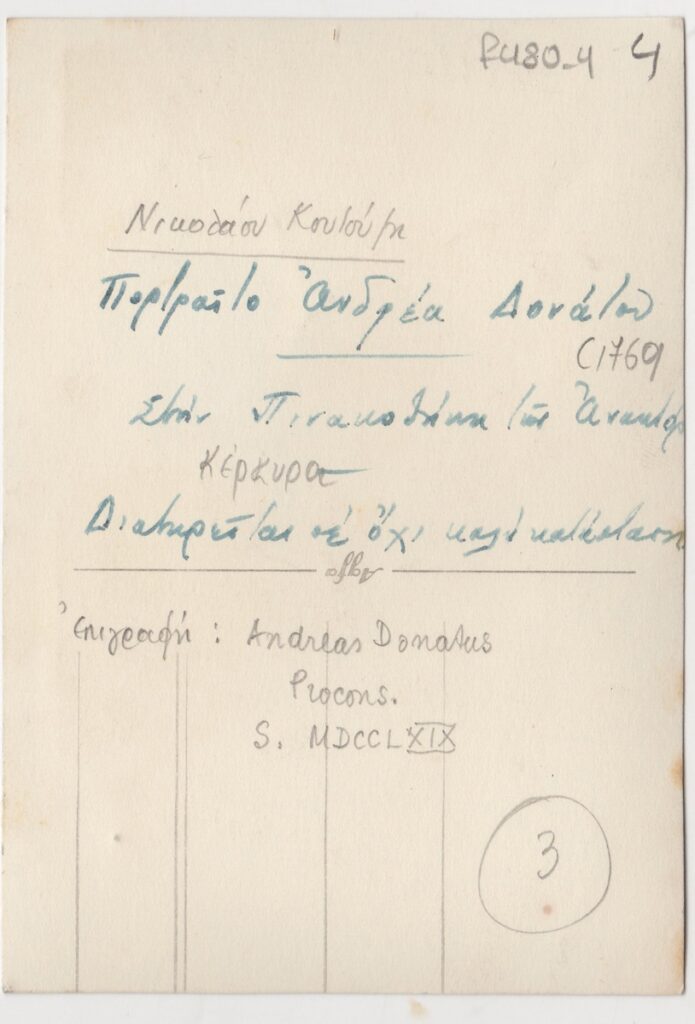 F480-4 4
Νικολάου Κουτούζη
Πορτραῖτο Ἀνδρέα Δονάτου
(1769
Στήν Πινακοθήκη τῶν Ἀνακτόρ
Κέρκυρα
Διατηρεῖται σέ ὄχι καλή κατάσταση
Agfa
Ἐπιγραφή : Andreas Donatus
Procons.
S. MDCCLXIX
3